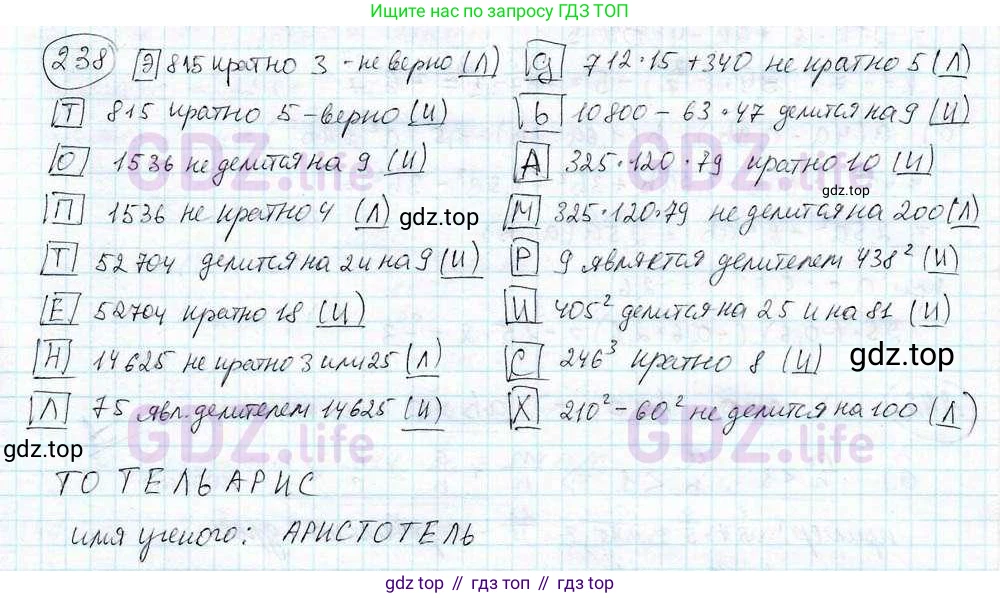 Ищите нас по запросу ГДЗ ТОП
238 Э 815 кратно 3 - не верно (Л)
Т 815 кратно 5 - верно (И)
О 1536 не делится на 9 (И)
П 1536 не кратно 4 (Л)
Т 52704 делится на 2 и на 9 (И)
Е 52704 кратно 18 (И)
Н 14625 не кратно 3 или 25 (Л)
Л 75 явл. делителем 14625 (И)
g 712·15+340 не кратно 5 (Л)
Ь 10800-63·47 делится на 9 (И)
А 325·120·79 кратно 10 (И)
М 325·120·79 не делится на 200 (Л)
Р 9 является делителем 438² (И)
И 405² делится на 25 и на 81 (И)
С 246³ кратно 8 (И)
Х 210²-60² не делится на 100 (Л)
ТО ТЕЛЬ АРИС
имя ученого: АРИСТОТЕЛЬ
GDZ.life
GDZ.life
GDZ.life
GDZ.life
gdz.top
gdz.top
gdz.top
gdz.top
gdz top // гдз топ // gdz top